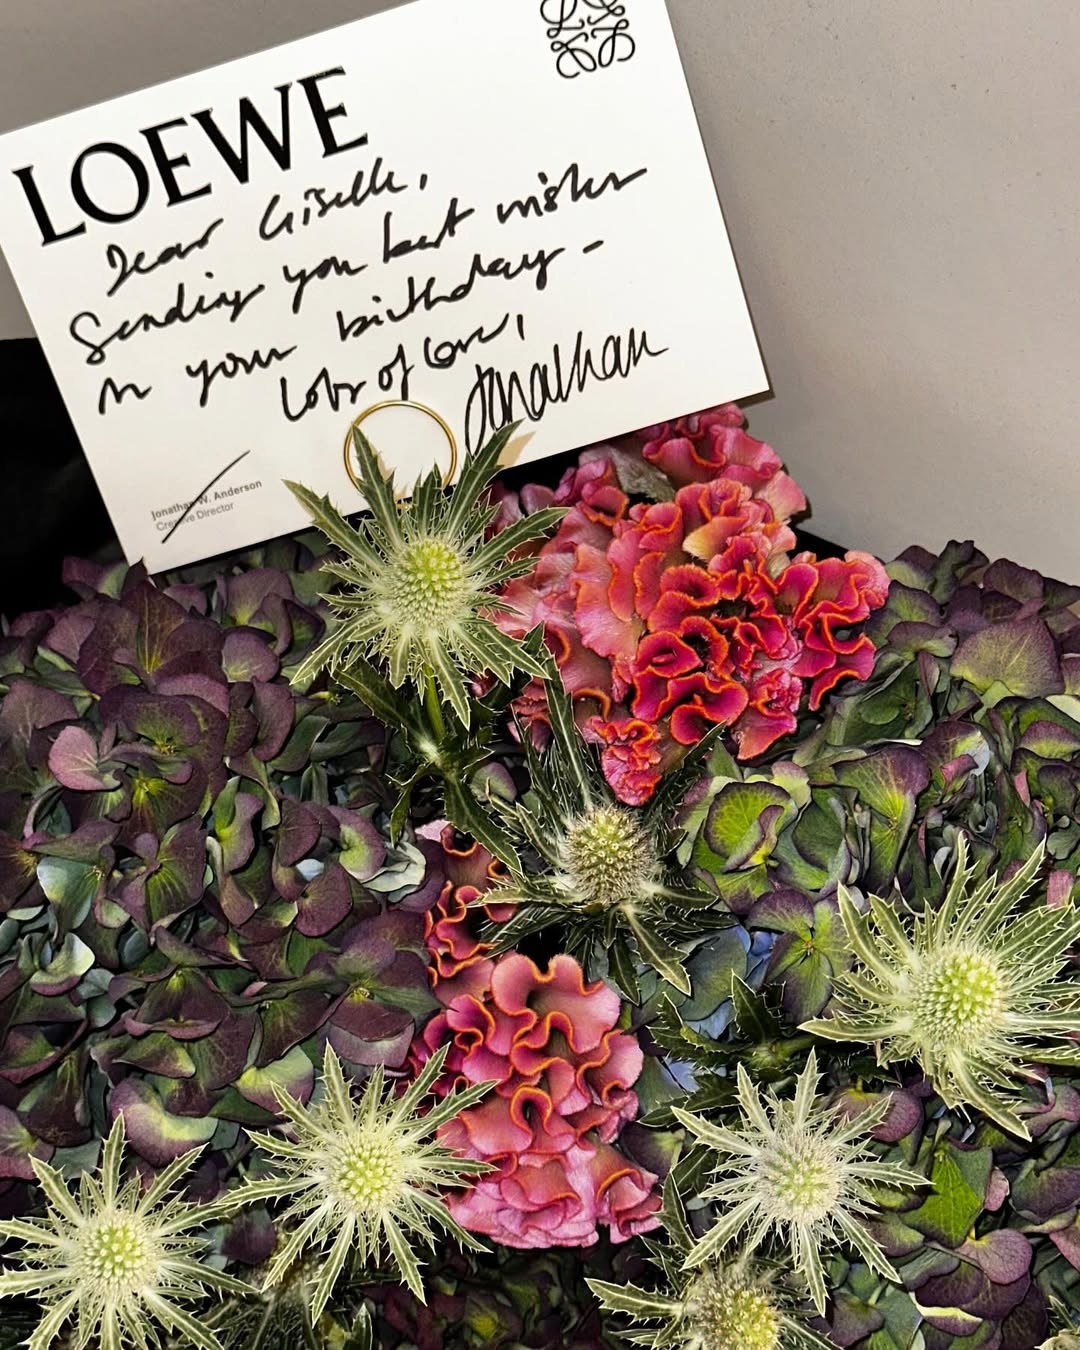 LOEWE
Dear Giselle,
Sending you best wishes
on your birthday -
Lots of love,
Jonathan
Jonathan W. Anderson
Creative Director